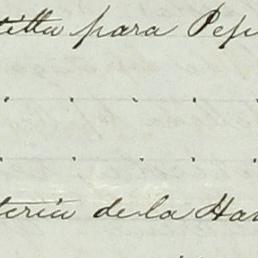 titta para Pepi
. . . . .
. . . . .
teria de la Hav